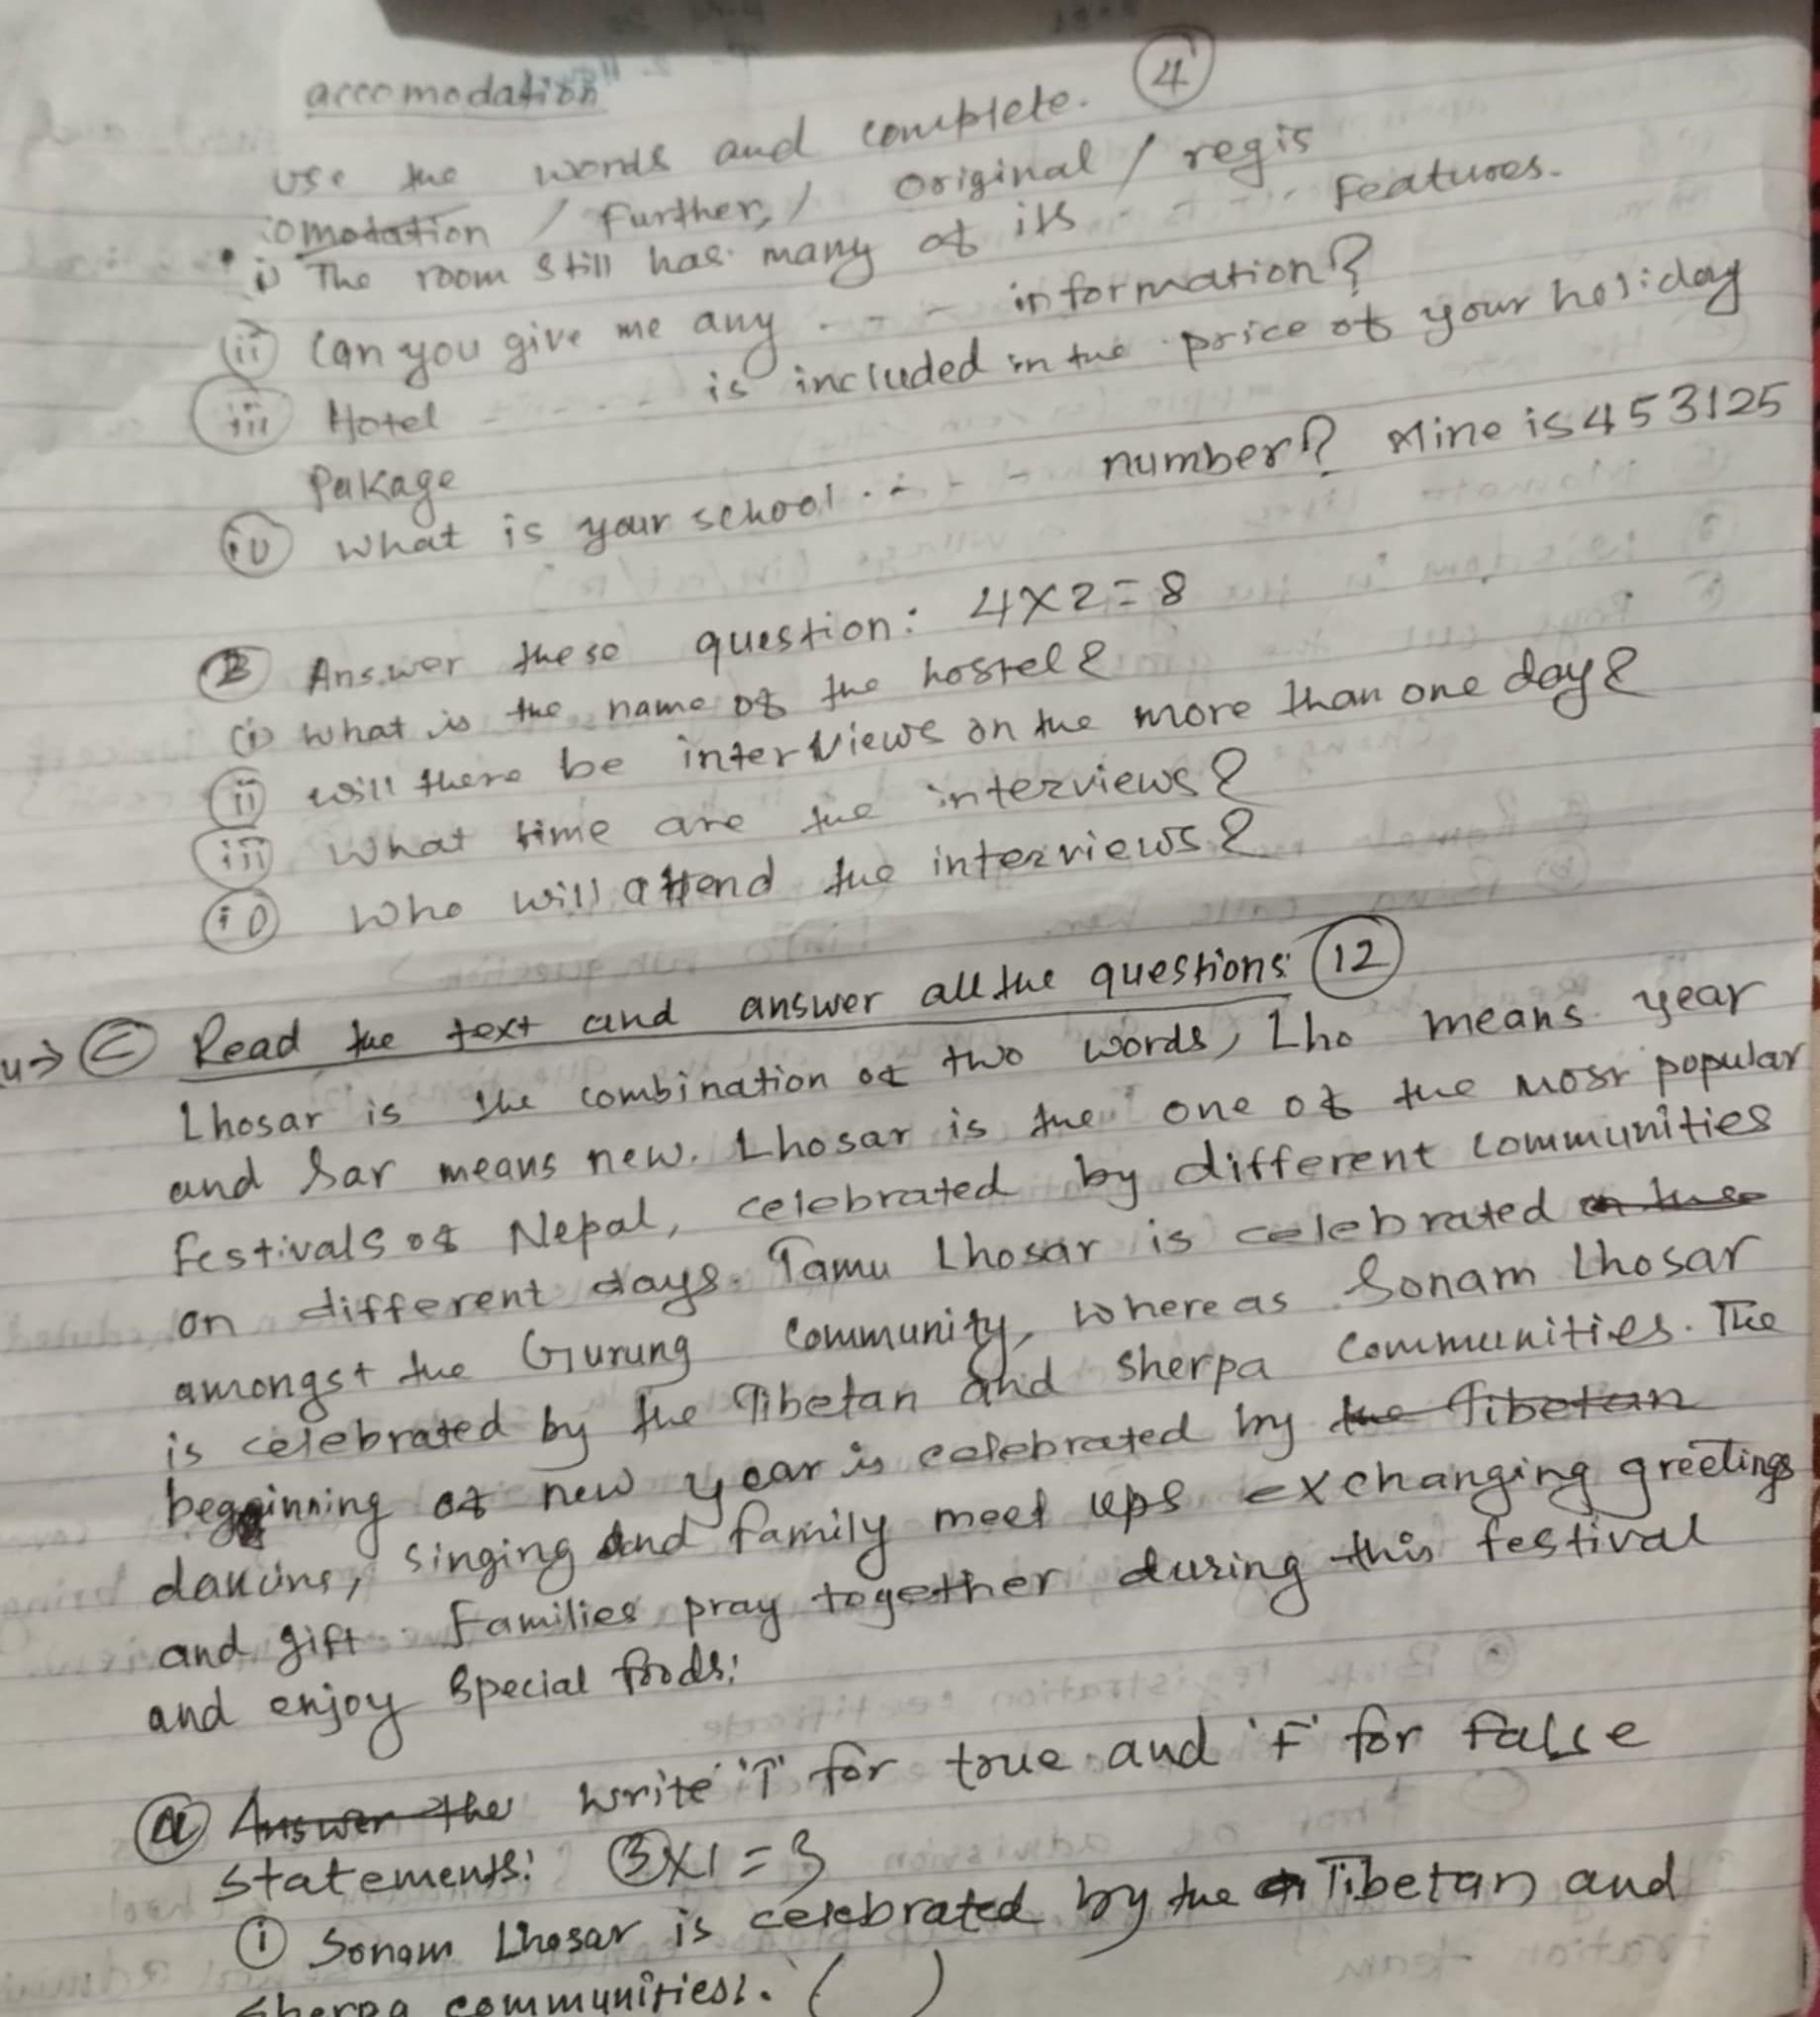 accomodation
use the words and complete. 4
comodation / further, / original / regis
i) The room still has many of its - - - features.
ii can you give me any - - - - information?
iii Hotel - - - - - is included in the price of your holiday
Pakage
iv what is your school - - - - number? Mine is 453125
B Answer these question: 4x2=8
(i) what is the name of the hostel?
ii will there be interviews on the more than one day?
iii what time are the interviews?
iv who will attend the interviews?
C Read the text and answer all the questions: 12
Lhosar is the combination of two words, Lho means year
and Sar means new. Lhosar is the one of the most popular
festivals of Nepal, celebrated by different communities
on different days. Tamu Lhosar is celebrated on the
amongst the Gurung community, whereas Sonam Lhosar
is celebrated by the Tibetan and Sherpa communities. The
begginning of new year is celebrated by the Tibetan
dancing, singing and family meet ups exchanging greetings
and gift. Families pray together during this festival
and enjoy special foods:
a Answer the write 'T' for true and 'F' for false
statements: 3x1=3
i Sonam Lhosar is celebrated by the Tibetan and
Sherpa communities. ( )